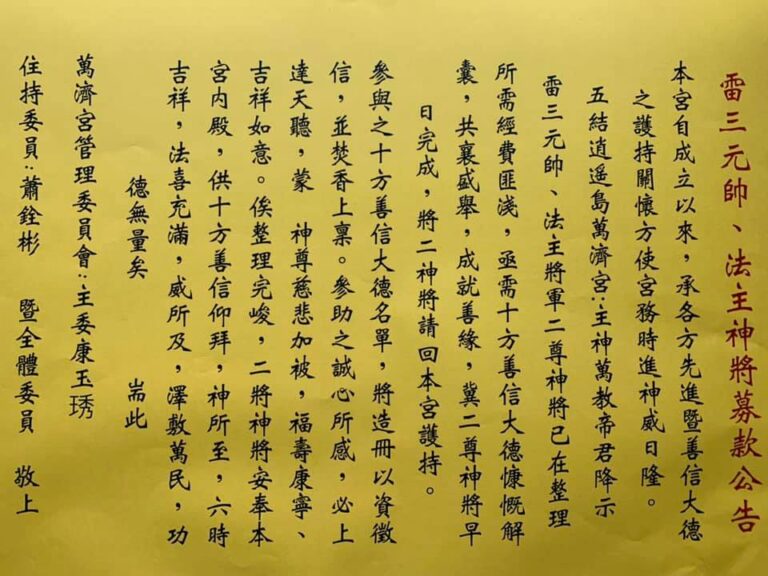 雷三元帥、法主神將募款公告
本宮自成立以來，承各方先進暨善信大德
之護持關懷方使宮務時進神威日隆。
五結逍遥島萬濟宮：主神萬教帝君降示
雷三元帥、法主將軍二尊神將已在整理
所需經費匪淺，亟需十方善信大德慷慨解
囊，共襄盛舉，成就善緣，冀二尊神將早
日完成，將二神將請回本宮護持。
參與之十方善信大德名單，將造冊以資徵
信，並焚香上稟。參助之誠心所感，必上
達天聽，蒙　神尊慈悲加被，福壽康寧、
吉祥如意。俟整理完峻，二將神將安奉本
宮內殿，供十方善信仰拜，神所至，六時
吉祥，法喜充滿，威所及，澤敷萬民，功
德無量矣　　　　耑此
萬濟宮管理委員會：主委康玉琇
住持委員：蕭銓彬　暨全體委員　敬上